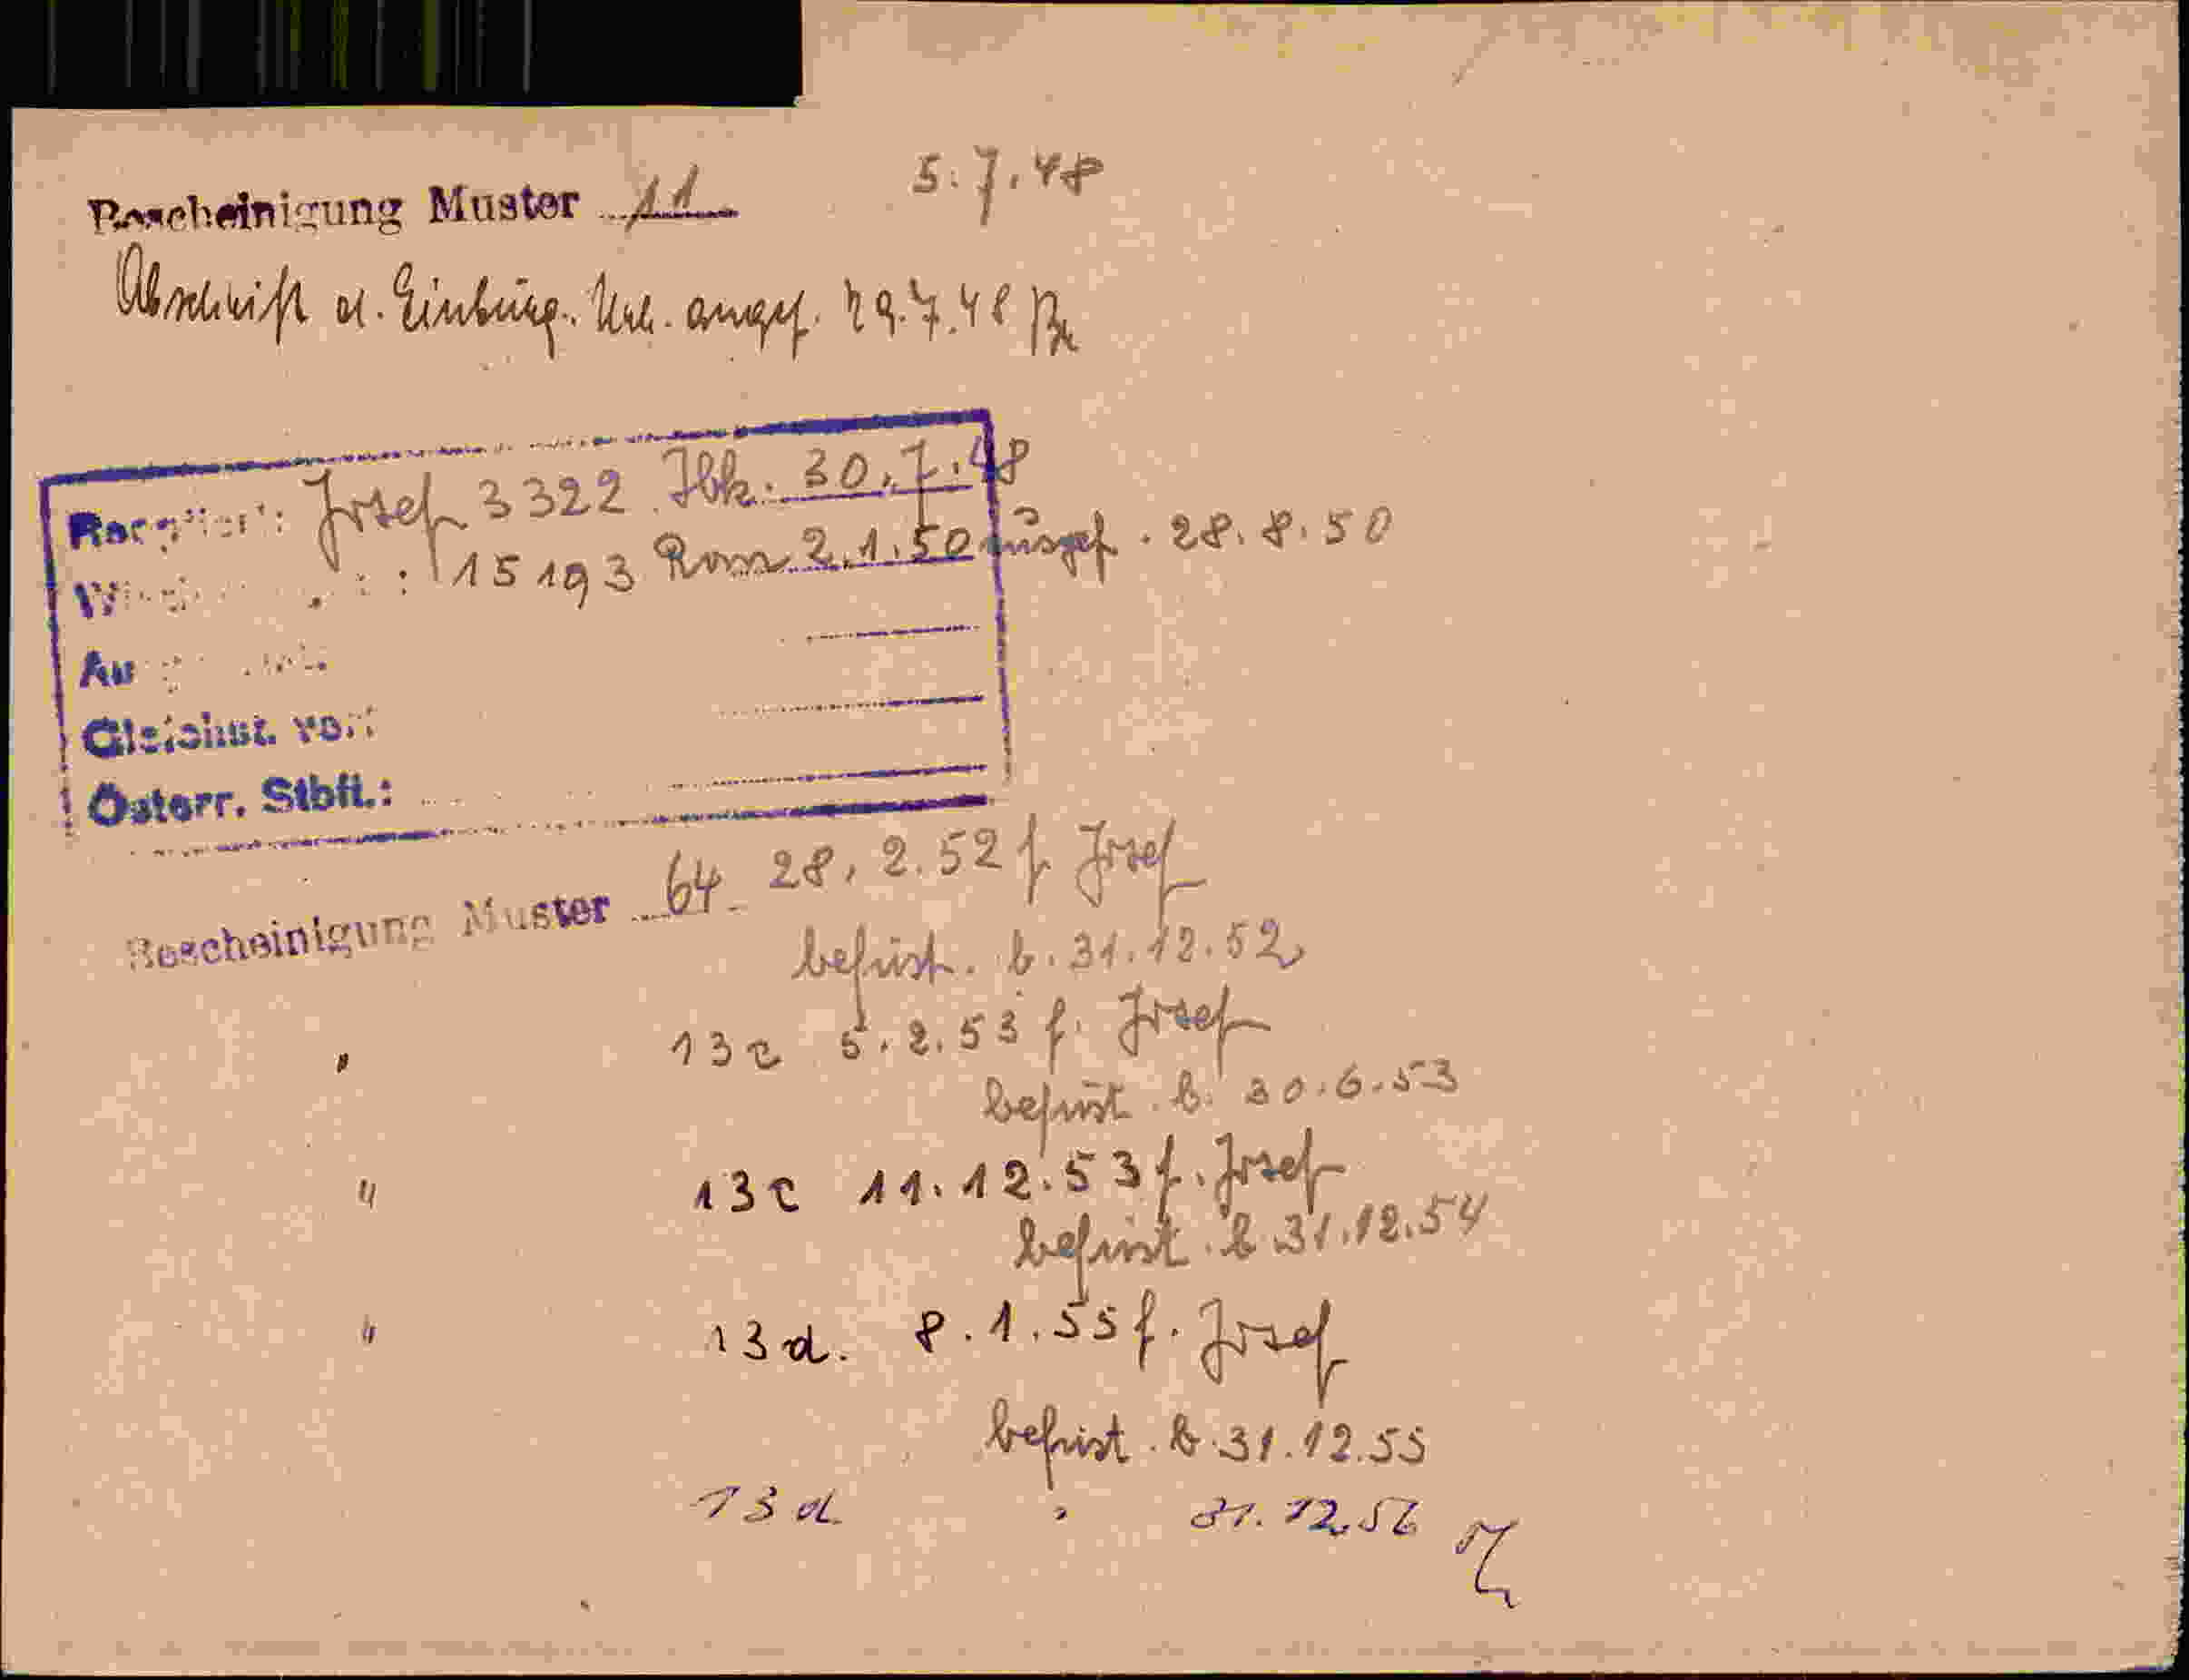 Bescheinigung Muster 11 5.7.48
Abschrift d. Einbürg. Urk. angef. 29.7.48
Josef 3322 Ibk. 30.7.48
: 15193 Rom 2.1.50 ausgef. 28.8.50
Gleichst. von:
Österr. Stbft.:
Bescheinigung Muster 64 28.2.52 f Josef
befrist. b. 31.12.52
" 13c 5.2.53 f. Josef
befrist. b. 30.6.53
" 13c 11.12.53 f. Josef
befrist. b. 31.12.54
" 13d. 8.1.55 f. Josef
befrist. b. 31.12.55
13d " 31.12.56